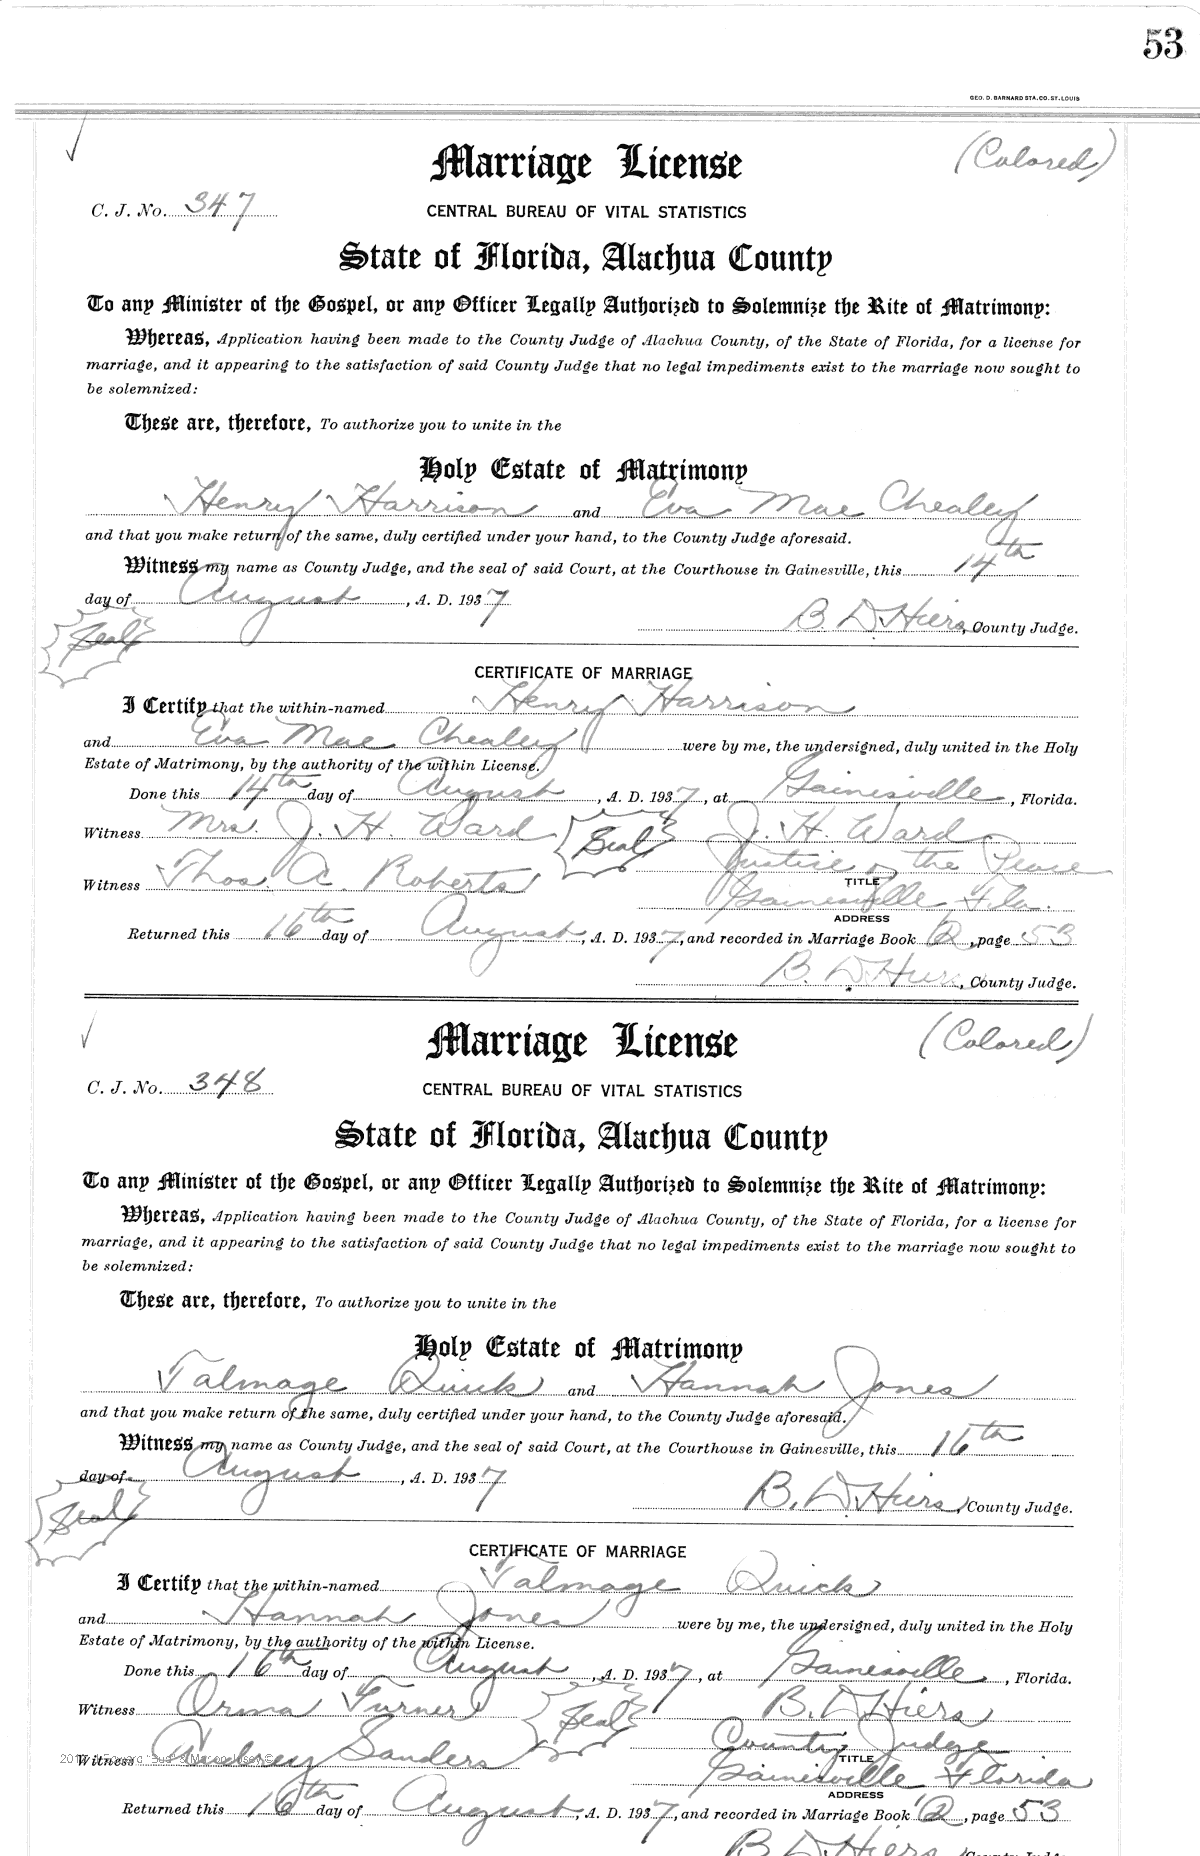 53
GEO. D. BARNARD STA. CO. ST. LOUIS
Marriage License
(Colored)
C. J. No. 347
CENTRAL BUREAU OF VITAL STATISTICS
State of Florida, Alachua County
To any Minister of the Gospel, or any Officer Legally Authorized to Solemnize the Rite of Matrimony:
Whereas, Application having been made to the County Judge of Alachua County, of the State of Florida, for a license for
marriage, and it appearing to the satisfaction of said County Judge that no legal impediments exist to the marriage now sought to
be solemnized:
These are, therefore, To authorize you to unite in the
Holy Estate of Matrimony
Henry Harrison and Eva Mae Chealey
and that you make return of the same, duly certified under your hand, to the County Judge aforesaid.
Witness my name as County Judge, and the seal of said Court, at the Courthouse in Gainesville, this 14th
day of August, A. D. 1937
Seal
B. D. Hiers, County Judge.
CERTIFICATE OF MARRIAGE
I Certify that the within-named Henry Harrison
and Eva Mae Chealey were by me, the undersigned, duly united in the Holy
Estate of Matrimony, by the authority of the within License.
Done this 14th day of August, A. D. 1937, at Gainesville, Florida.
Witness Mrs. J. H. Ward Seal J. H. Ward
Justice of the Peace
TITLE
Witness Thos. A. Roberts Gainesville Fla.
ADDRESS
Returned this 16th day of August, A. D. 1937, and recorded in Marriage Book Q, page 53
B. D. Hiers, County Judge.
Marriage License
(Colored)
C. J. No. 348
CENTRAL BUREAU OF VITAL STATISTICS
State of Florida, Alachua County
To any Minister of the Gospel, or any Officer Legally Authorized to Solemnize the Rite of Matrimony:
Whereas, Application having been made to the County Judge of Alachua County, of the State of Florida, for a license for
marriage, and it appearing to the satisfaction of said County Judge that no legal impediments exist to the marriage now sought to
be solemnized:
These are, therefore, To authorize you to unite in the
Holy Estate of Matrimony
Talmage Quick and Hannah Jones
and that you make return of the same, duly certified under your hand, to the County Judge aforesaid.
Witness my name as County Judge, and the seal of said Court, at the Courthouse in Gainesville, this 16th
day of August, A. D. 1937
Seal
B. D. Hiers, County Judge.
CERTIFICATE OF MARRIAGE
I Certify that the within-named Talmage Quick
and Hannah Jones were by me, the undersigned, duly united in the Holy
Estate of Matrimony, by the authority of the within License.
Done this 16th day of August, A. D. 1937, at Gainesville, Florida.
Witness Orma Turner Seal B. D. Hiers
County Judge
TITLE
Witness Audrey Sanders Gainesville Florida
ADDRESS
Returned this 16th day of August, A. D. 1937, and recorded in Marriage Book Q, page 53
B. D. Hiers, County Judge